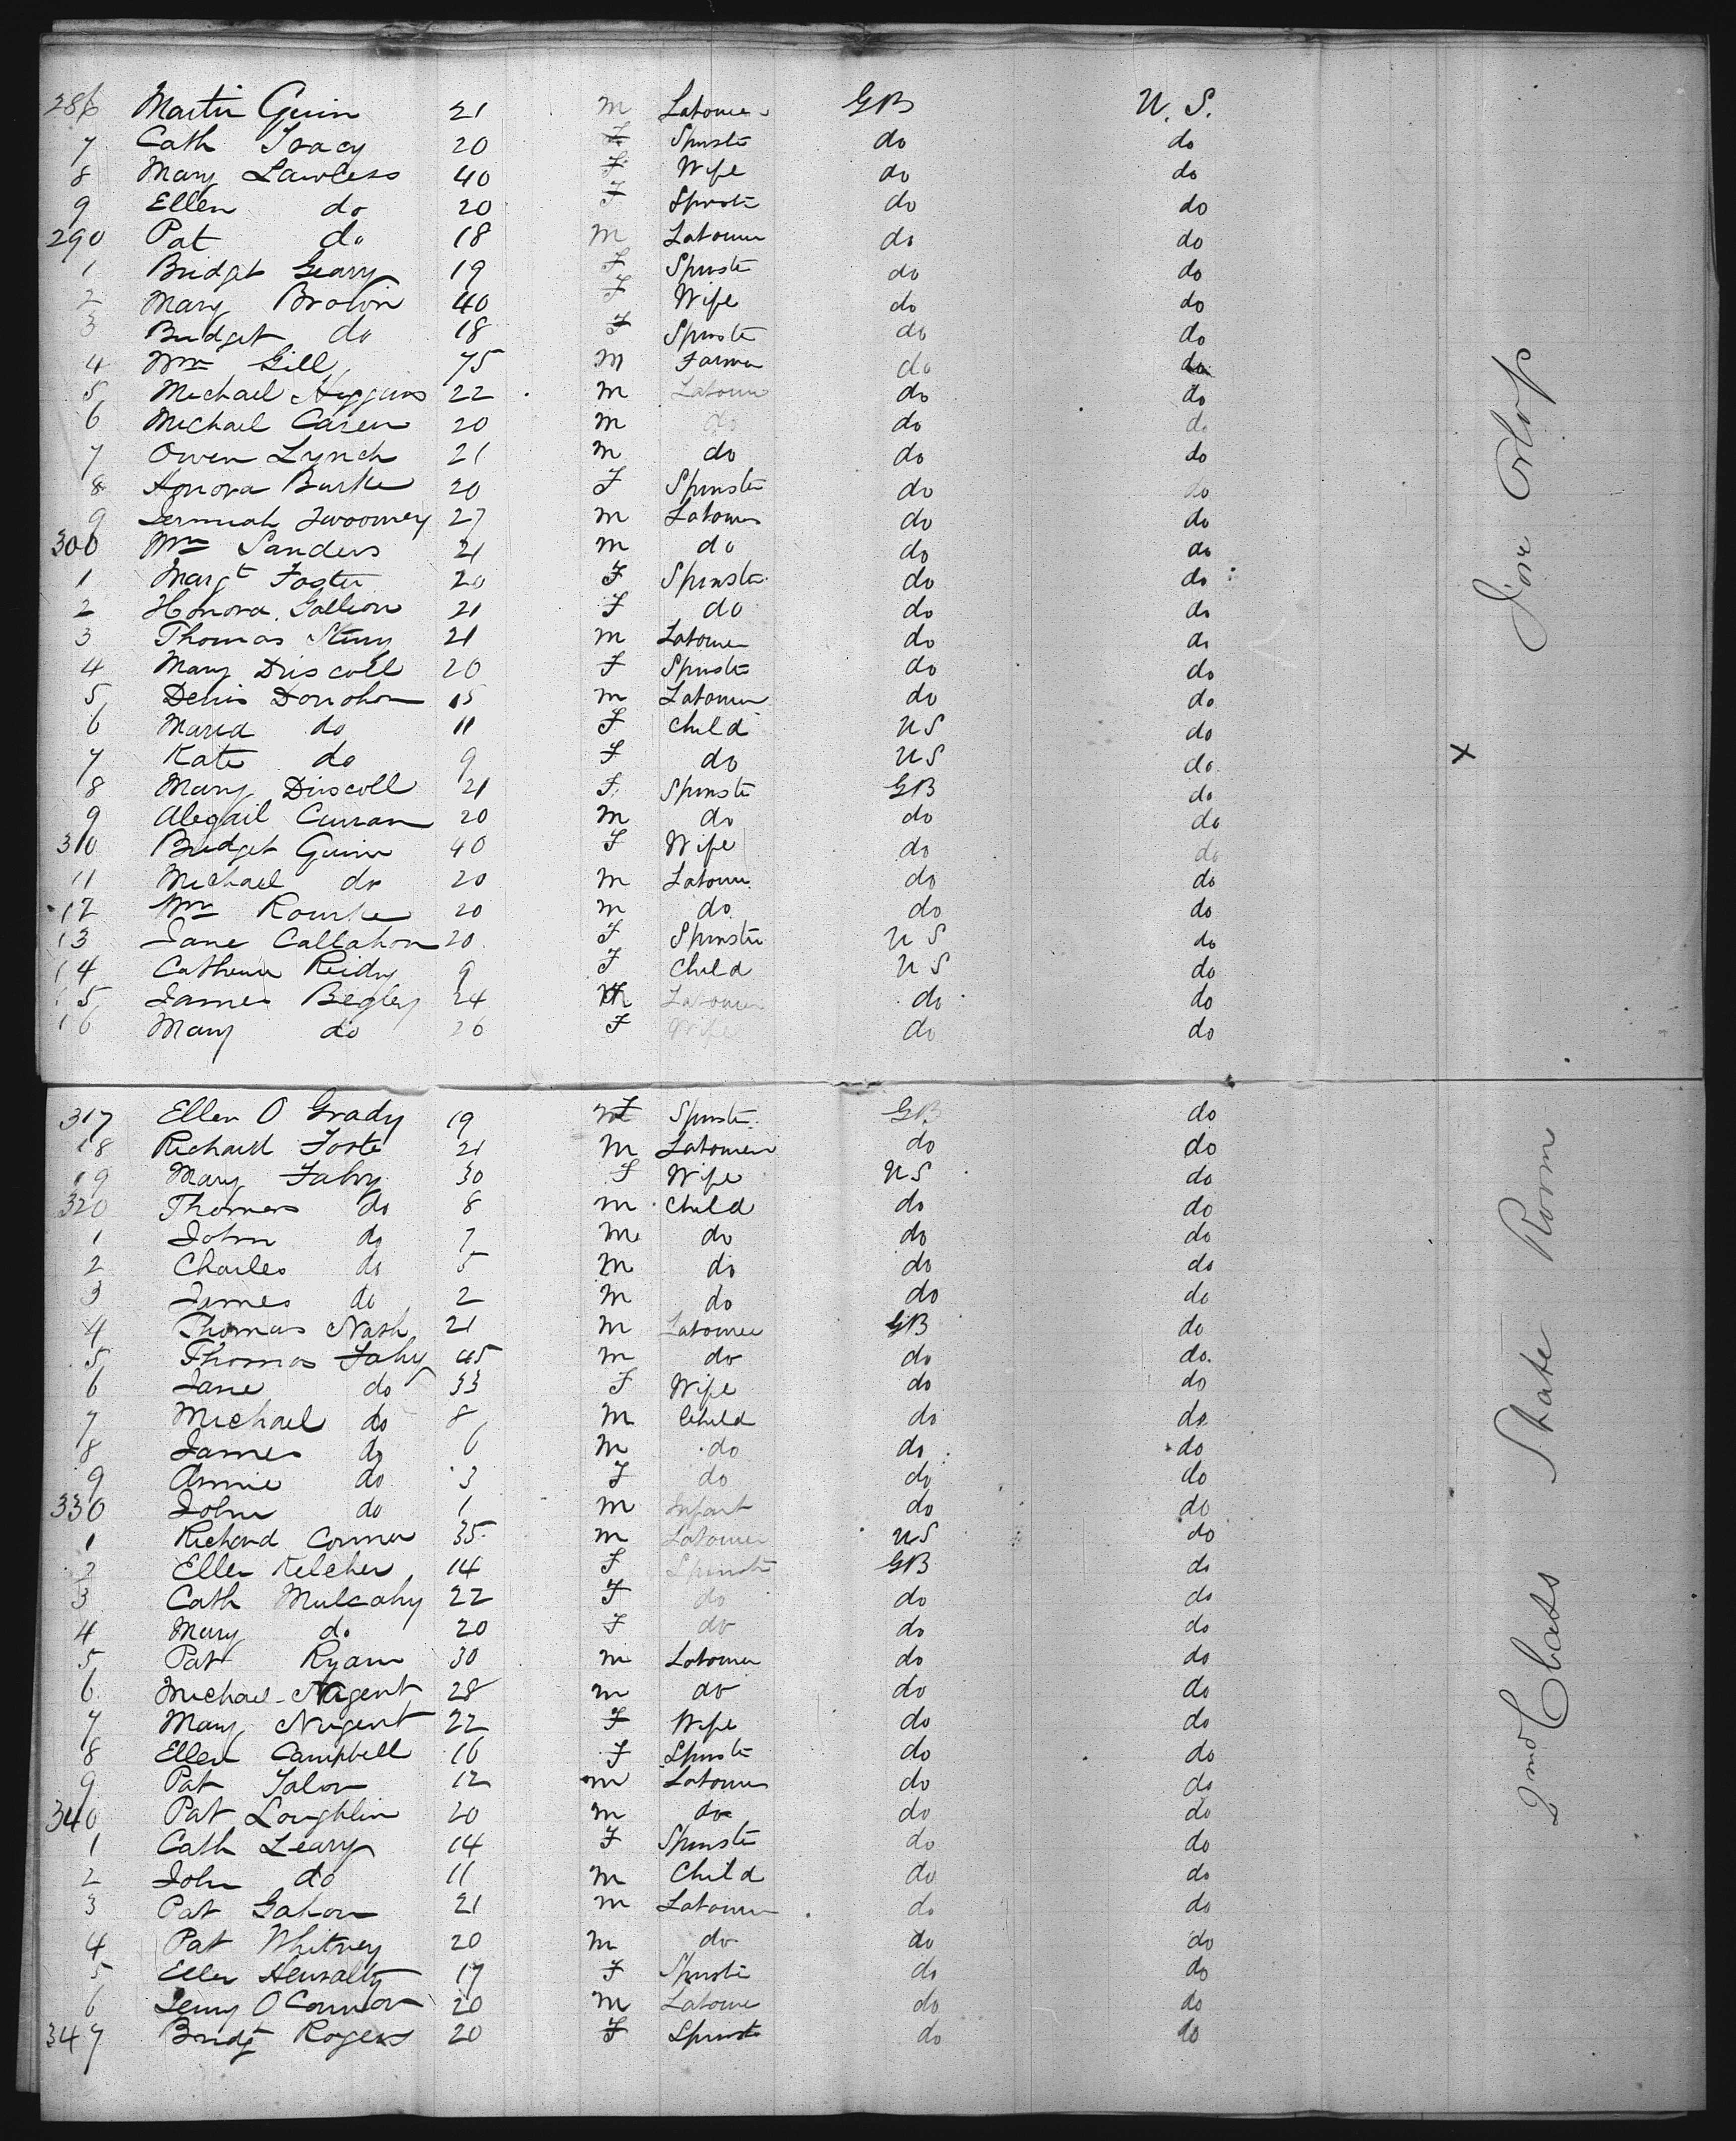 286 Martin Guin 21 m Labourer GB U. S.
7 Cath Tracy 20 F Spinster do do
8 Mary Lawless 40 F Wife do do
9 Ellen do 20 F Spinster do do
290 Pat do 18 m Labourer do do
1 Bridget Geary 19 F Spinster do do
2 Mary Brown 40 F Wife do do
3 Bridget do 18 F Spinster do do
4 Wm Gill 75 M Farmer do do
5 Michael Higgins 22 m Labourer do do
6 Michael Caren 20 m do do do
7 Owen Lynch 21 m do do do
8 Honora Burke 20 F Spinster do do
9 Jermiah Twoomey 27 m Labourer do do
300 Wm Sanders 21 m do do do
1 Margt Foster 20 F Spinster do do
2 Honora Gallion 21 F do do do
3 Thomas 21 m Labourer do do
4 Mary Driscoll 20 F Spinster do do
5 Denis Donohoe 15 m Labourer do do
6 Maria do 11 F Child US do
7 Kate do 9 F do US do
8 Mary Driscoll 21 F Spinster GB do
9 Abegail Curran 20 m do do do
310 Bridget Guinn 40 F Wife do do
11 Michael do 20 m Labourer do do
12 Wm Rourke 20 m do do do
13 Jane Callahon 20 F Spinster US do
14 Catherine Reidy 9 F Child US do
15 James Begley 24 M Labourer do do
16 Mary do 26 F Wife do do
Fore Orlop
X
317 Ellen O Grady 19 F Spinster GB do
18 Richard Foote 21 M Labourer do do
19 Mary Fahy 30 F Wife US do
320 Thomas do 8 m Child do do
1 John do 7 m do do do
2 Charles do 5 m do do do
3 James do 2 m do do do
4 Thomas Nash 21 m Labourer GB do
5 Thomas Fahy 45 m do do do
6 Jane do 33 F Wife do do
7 Michael do 8 m Child do do
8 James do 6 m do do do
9 Annie do 3 F do do do
330 John do 1 m Infant do do
1 Richard Connor 35 m Labourer US do
2 Ellen Kelcher 14 F Spinster GB do
3 Cath Mulcahy 22 F do do do
4 Mary do 20 F do do do
5 Pat Ryan 30 m Labourer do do
6 Michael Nugent 28 m do do do
7 Mary Nugent 22 F Wife do do
8 Ellen Campbell 16 F Spinster do do
9 Pat Talon 12 m Labourer do do
340 Pat Loughlin 20 m do do do
1 Cath Leary 14 F Spinster do do
2 John do 11 m Child do do
3 Pat Gahon 21 m Labourer do do
4 Pat Whitney 20 m do do do
5 Ellen 17 F Spinster do do
6 Jerry O Connor 20 m Labourer do do
347 Bridg Rogers 20 F Spinster do do
2nd Class State Room